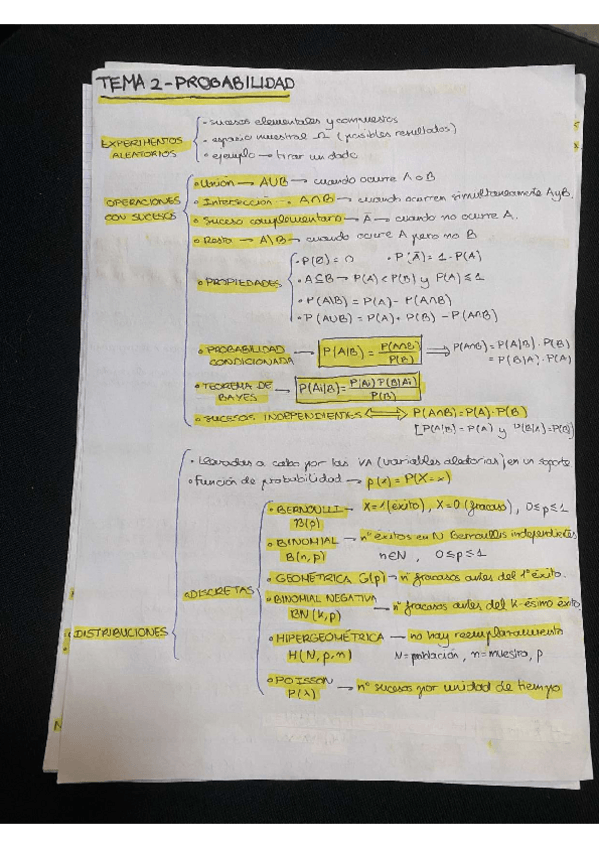 TEMA 2 - PROBABILIDAD
EXPERIMENTOS ALEATORIOS
· sucesos elementales y compuestos
· espacio muestral Ω (posibles resultados)
· ejemplo → tirar un dado
OPERACIONES CON SUCESOS
· Unión → A∪B → cuando ocurre A o B
· Intersección → A∩B → cuando ocurren simultáneamente A y B.
· Suceso complementario → Ā → cuando no ocurre A.
· Resto → A\B → cuando ocurre A pero no B
· PROPIEDADES
· P(Ø) = 0 · P(Ā) = 1 - P(A)
· A⊆B → P(A) < P(B) y P(A) ≤ 1
· P(A\B) = P(A) - P(A∩B)
· P(A∪B) = P(A) + P(B) - P(A∩B)
· PROBABILIDAD CONDICIONADA → P(A|B) = P(A∩B) / P(B) ⇒ P(A∩B) = P(A|B) · P(B)
= P(B|A) · P(A)
· TEOREMA DE BAYES → P(Ai|B) = P(Ai) P(B|Ai) / P(B)
· SUCESOS INDEPENDIENTES ⇔ P(A∩B) = P(A) · P(B)
[P(A|B) = P(A) y P(B|A) = P(B)]
DISTRIBUCIONES
· Llevadas a cabo por las VA (variables aleatorias) en un soporte
· Función de probabilidad → p(x) = P(X=x)
· DISCRETAS
· BERNOULLI → X=1 (éxito), X=0 (fracaso), 0≤p≤1
B(p)
· BINOMIAL → nº éxitos en N Bernoullis independientes
B(n,p) n∈N, 0≤p≤1
· GEOMÉTRICA G(p) → nº fracasos antes del 1º éxito.
· BINOMIAL NEGATIVA → nº fracasos antes del k-ésimo éxito
BN(k,p)
· HIPERGEOMÉTRICA → no hay reemplazamiento
H(N,p,n) N=población, n=muestra, p
· POISSON → nº sucesos por unidad de tiempo
P(λ)